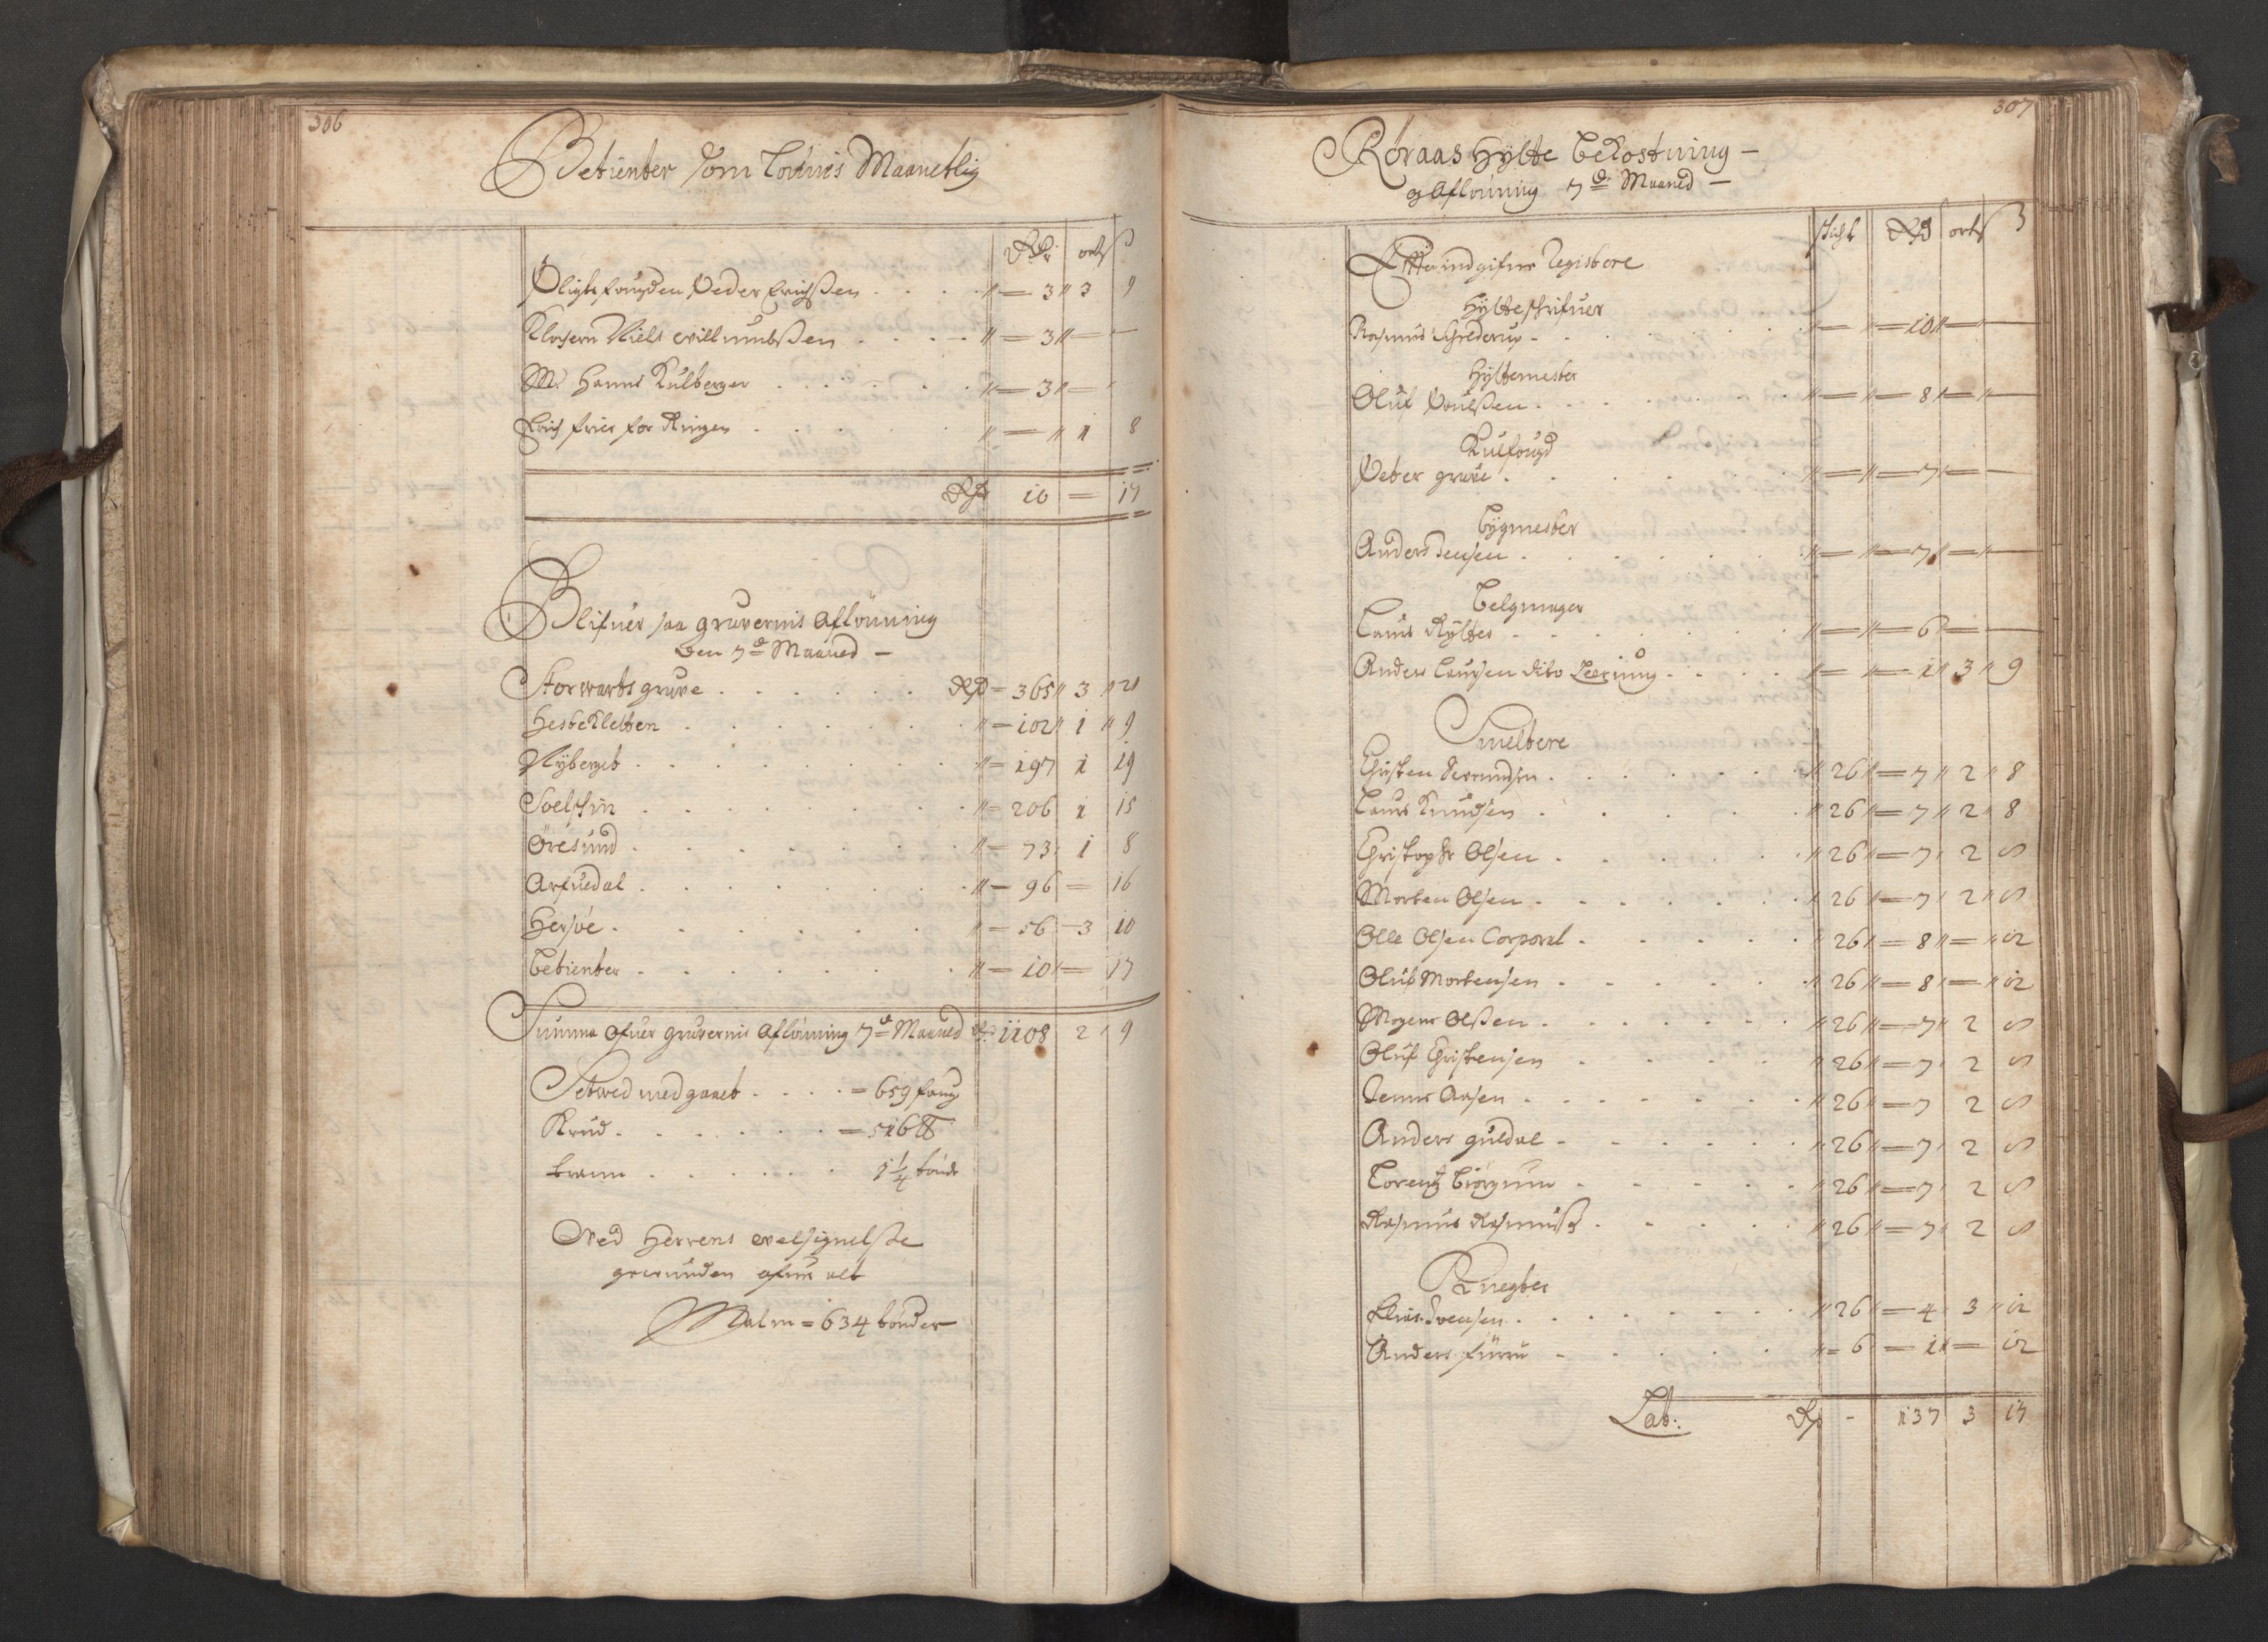 306
Betienter som Lønnis Maanetlig
Rdr ort ß
Pligtsfougden Peder Erichßen . . . . " = 3 " 3 9
Niels Willumbßen . . . . " = 3 " — —
Mr. Hanns Kulberger . . . . " = 3 " —
Erich friis for Ringen . . . . " — " 1 8
Rdr 10 = 17
Blifuer saa gruvernis Aflønning
Den 7de Maaned —
Storwarts gruve . . . . Rdr = 365 " 3 " 20
Hesteklotten . . . . " = 102 " 1 " 9
Nÿberget . . . . " = 197 1 19
Soelskin . . . . " = 206 1 15
Øresund . . . . " = 73 1 8
Arfuedal . . . . " = 96 = 16
Hersøe . . . . " = 56 — 3 10
Betienter . . . . " = 10 " = 17
Summa ofuer gruvernis Aflønning 7de Maaned Rdr 1108 2 " 9
Setwed medgaaet . . . . = 659 faug
Krud . . . . = 516 ℔
trann . . . . 1 1/4 tønde
Ved Herrens velsignelsße
gewunden ofuer alt
Malm = 634 tønder
307
Røraas Hÿtte Bekostning —
og Aflønning 7de Maaned —
skiht Rdr ort ß
Efter indgifne Registere
Hÿtteskrifuer
Rasmus Schelderup . . " = " = 10 " — —
Hÿttemester
Oluf Poulßen . . . . " = " = 8 " = " —
Kulfougd
Peter gruve . . . . " = " = 7 " = —
Bÿgmester
Anders Jensen . . . . " = " = 7 " = " —
Belgmager
Laurs Rÿtter . . . . " = " = 6 " = —
Anders Laursen dito Leeriung . . . . " = " = 1 " 3 " 9
Smeltere
Christen Sermundsen . . . . " 26 " = 7 " 2 " 8
Laurs Knudsen . . . . " 26 " = 7 " 2 " 8
Christopher Olsen . . . . " 26 " = 7 " 2 8
Morten Olsen . . . . " 26 " = 7 " 2 " 8
Olle Olsen Corporal . . . . " 26 " = 8 " = " 12
Oluf Mortensen . . . . " 26 " = 8 " = " 12
Mogens Olßen . . . . " 26 " = 7 " 2 8
Oluf Christensen . . . . " 26 " = 7 " 2 8
Jenns Aasen . . . . " 26 " = 7 2 8
Anders guldal . . . . " 26 " = 7 " 2 8
Lorentz Biørnum . . . . " 26 " = 7 " 2 8
Rasmus Rasmusß . . . . " 26 " = 7 " 2 8
Knegter
Elias Svensen . . . . " 26 " = 4 3 " 12
Anders furru . . . . " = 6 = 1 " = 12
Lat: Rdr - 137 3 17